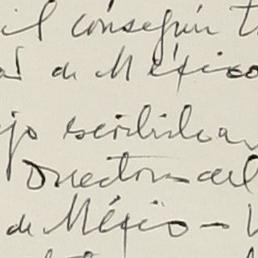 il conseguir t
al de México
jo escribira
Director del
de México -